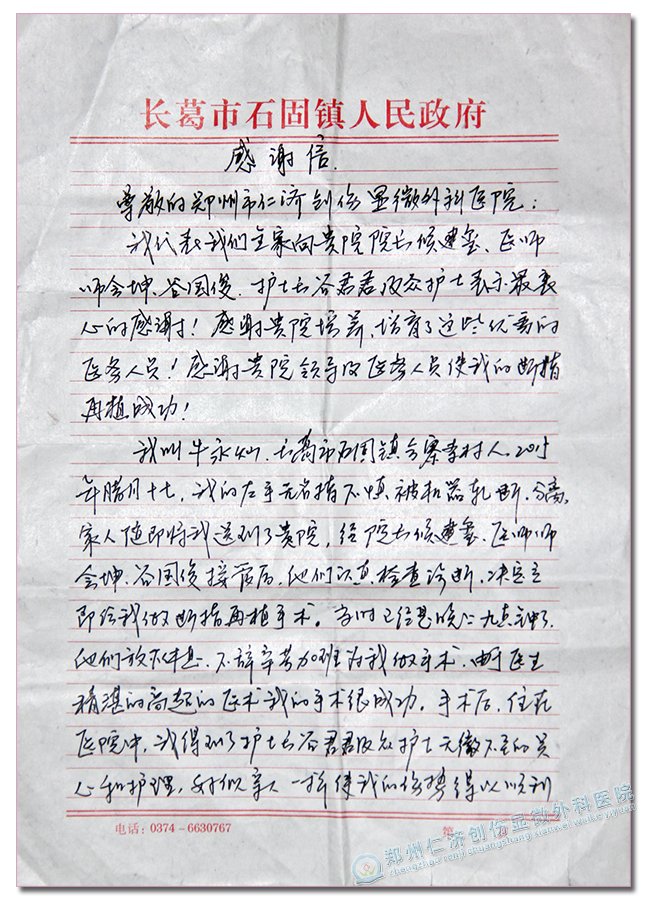 长葛市石固镇人民政府
感谢信.
尊敬的郑州市仁济创伤显微外科医院:
我代表我们全家向贵院院长候建玺、医师
师会坤、谷国俊、护士长谷君君及众护士表示最衷
心的感谢!感谢贵院培养、培育了这些优秀的
医务人员!感谢贵院领导及医务人员使我的断指
再植成功!
我叫牛永灿、长葛市石固镇合寨李村人、2015
年腊月十七,我的左手无名指不慎被机器轧断、分离、
家人随即将我送到了贵院,经院长候建玺、医师师
会坤、谷国俊接诊后,他们认真检查诊断,决定立
即给我做断指再植手术。当时已经是晚上九点钟了、
他们放下休息、不辞辛苦加班为我做手术、由于医生
精湛的高超的医术我的手术很成功。手术后、住在
医院中,我得到了护士长谷君君及众护士无微不至的关
心和护理,对似亲人一样使我的伤势得以顺利
电话:0374-6630767
第 页
郑州仁济创伤显微外科医院
zhengzhou renji chuangshang xianwei waike yiyuan